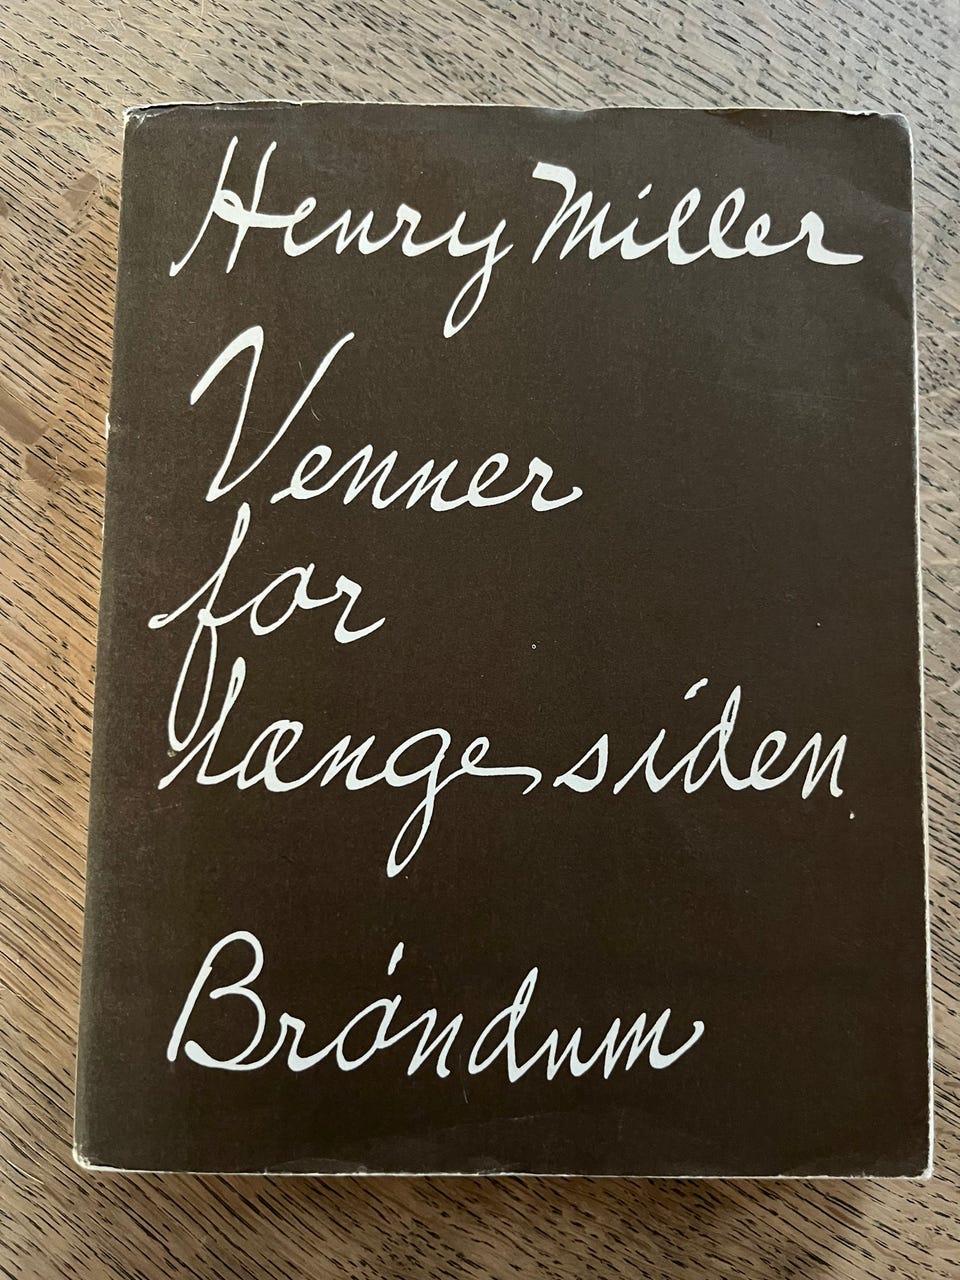 Henry Miller
Venner
for
længe siden
Bróndum